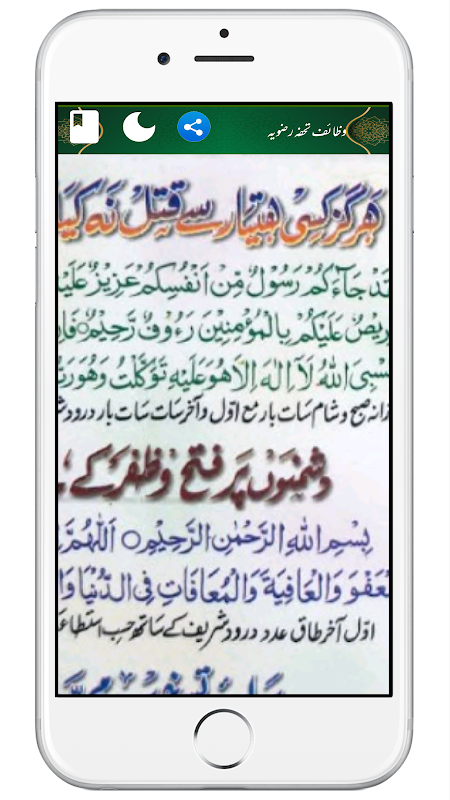 وظائف تحفہ رضویہ
ہرگز کسی ہتیار سے قتل نہ کیا
قَدْ جَآءَكُمْ رَسُوْلٌ مِّنْ اَنْفُسِكُمْ عَزِيْزٌ عَلَيْ
رِيْصٌ عَلَيْكُمْ بِالْمُؤْمِنِيْنَ رَءُوْفٌ رَّحِيْمٌ ○ فَاِنْ
سْبِىَ اللّٰهُ لَآ اِلٰهَ اِلَّا هُوَ عَلَيْهِ تَوَكَّلْتُ وَهُوَ رَبُّ
زانہ صبح و شام سات بار مع اوّل و آخر سات سات بار درود ش
دشمنوں پر فتح و ظفر کے
بِسْمِ اللّٰهِ الرَّحْمٰنِ الرَّحِيْمِ ○ اَللّٰهُمَّ
لْعَفْوَ وَالْعَافِيَةَ وَالْمُعَافَاتِ فِى الدُّنْيَا وَا
اوّل آخر طاق عدد درود شریف کے ساتھ حسب استطاع